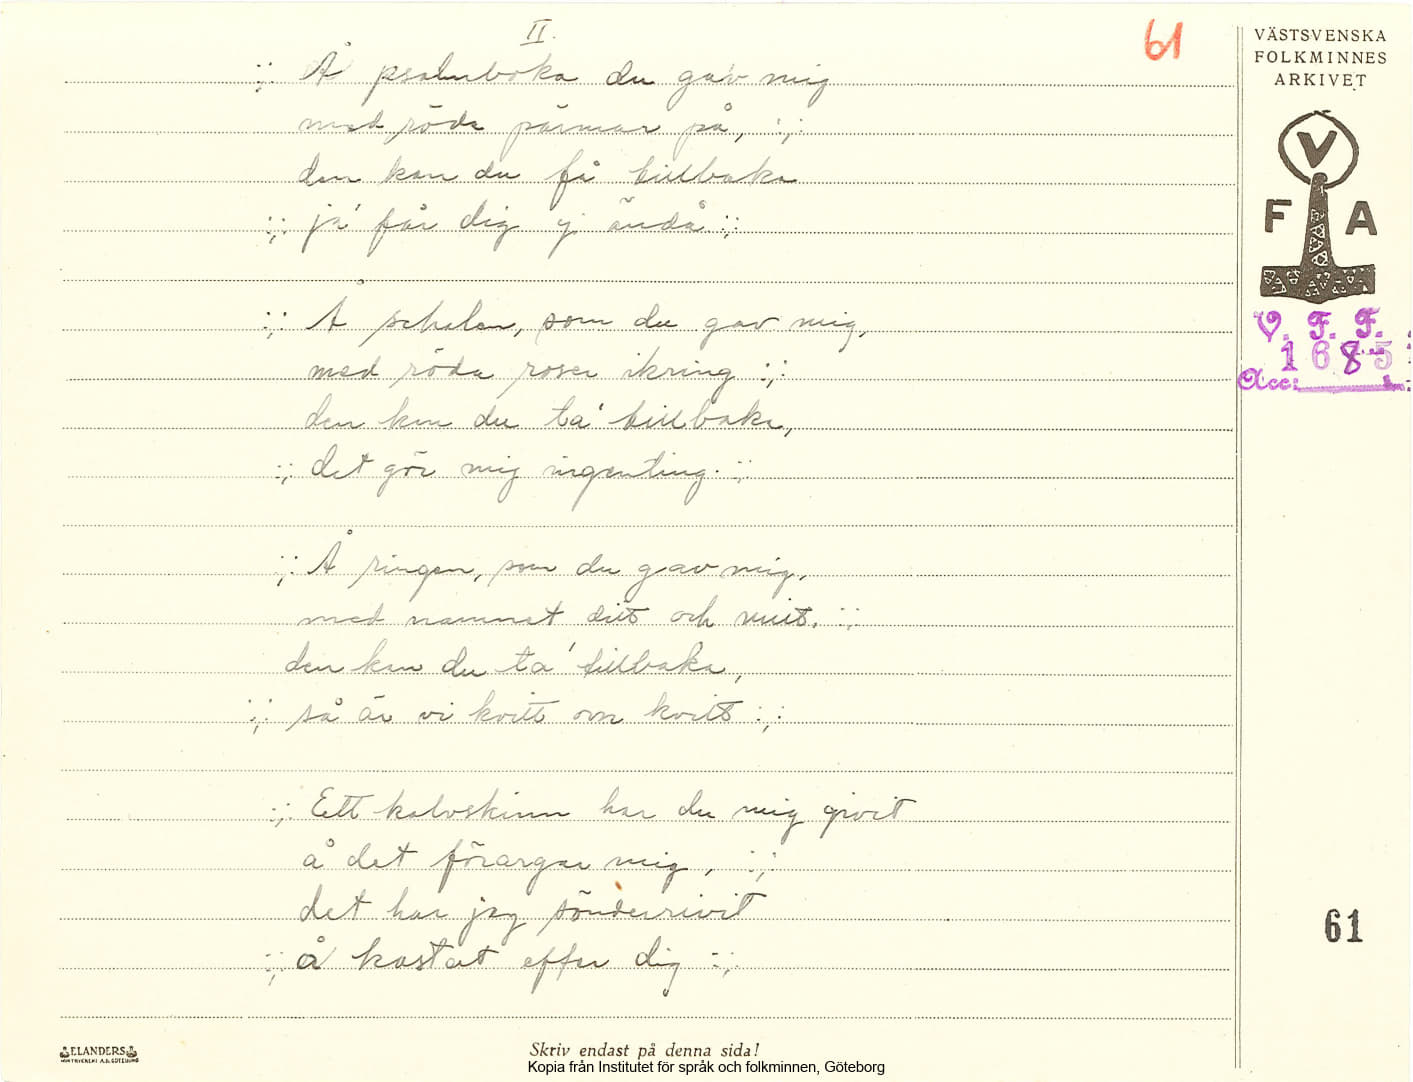 II.
61
VÄSTSVENSKA
FOLKMINNES
ARKIVET
V
F A
V. F. F.
1685
Acc:
:,: Å psalmboka du gav mig
med röda pärmar på, :,:
den kan du få tillbaka
:,: ja' får dig ej ändå :,:
:,: Å schalen, som du gav mig,
med röda roser ikring :,:
den kan du ta' tillbaka,
:,: det gör mig ingenting. :,:
:,: Å ringen, som du gav mig,
med namnet ditt och mitt. :,:
den kan du ta' tillbaka,
:,: så är vi kvitt om kvitt :,:
:,: Ett kalvskinn har du mig givit
å det förargar mig, :,:
det har jag sönderrivit
:,: å kastat efter dig :,:
61
ELANDERS
Skriv endast på denna sida!
Kopia från Institutet för språk och folkminnen, Göteborg